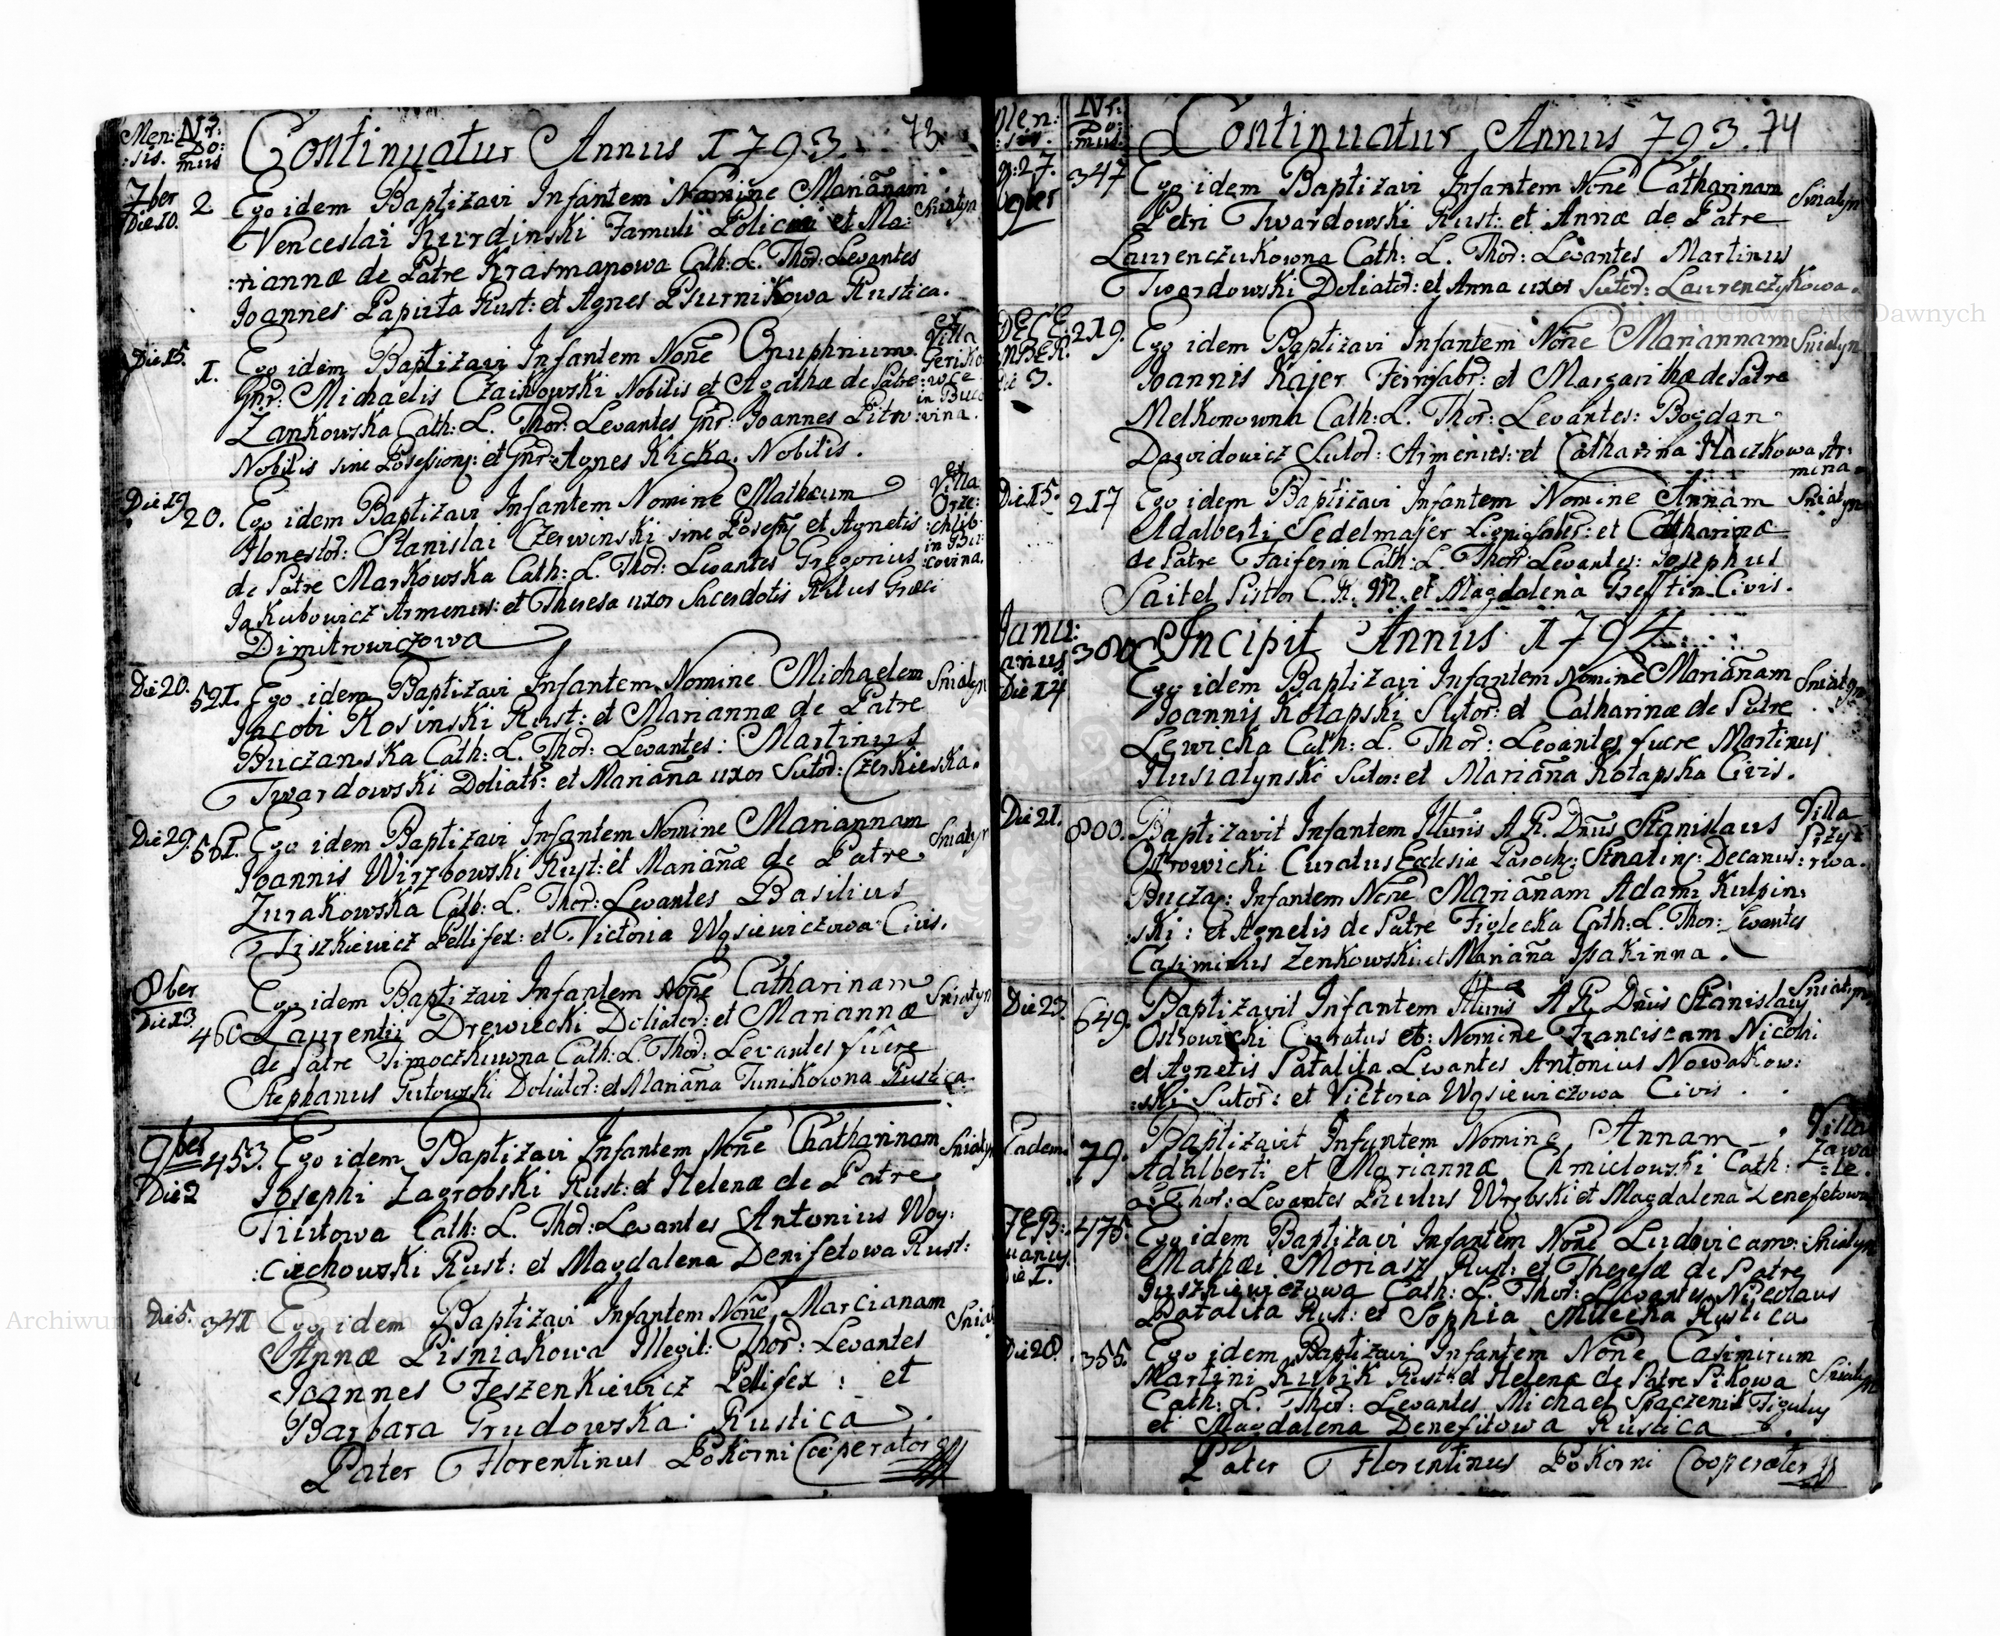 Men: Nr:
:sis. Do:
mus
Continuatur Annus 1793. 73.
7ber
Die 10. 2 Ego idem Baptizavi Infantem Nomine Mariãnam Sniatyn
Venceslai Kurdinski Famuli et Ma:
:riannæ de Patre Krasmanowa Cath: L. Thor: Levantes
Joannes Paputa Rust: et Agnes Psurnikowa Rustica.
Die 15. 1. Ego idem Baptizavi Infantem Noñe Onuphrium. ex Villa
Gnr: Michaelis Czaikowski Nobilis et Agathæ de Patre :wce in Buco
Zankowska Cath: L. Thor: Levantes Gnr: Joannes Pitru :vina.
Nobilis sine Posessione: et Gnr: Agnes Kicka. Nobilis.
Die 19. 20. Ego idem Baptizavi Infantem Nomine Mathæum ex Villa
Honestor: Stanislai Czerwinski sine Posess et Agnetis Orze: :chlib:
de Patre Markowska Cath: L. Thor: Levantes Gregorius in Bu: :covina.
Jakubowicz Armenus: et Theresa uxor Sacerdotis Ritus Græci
Dimitrowiczowa
Die 20. 521. Ego idem Baptizavi Infantem Nomine Michaelem Sniatyn
Jacobi Kosinski Rust: et Mariannæ de Patre
Buczanska Cath: L. Thor: Levantes: Martinus
Twardowski Doliatr: et Mariãna uxor Sutor: Czerkieska.
Die 29. 561. Ego idem Baptizavi Infantem Nomine Mariannam Sniatyn
Joannis Wirzbowski Rust: et Mariãnæ de Patre
Zurakowska Cath: L. Thor: Levantes Basilius
Tiszkiewicz Pellifex: et Victoria Wąsiewiczowa Civis.
8ber
Die 13. Ego idem Baptizavi Infantem Noñe Catharinam Sniatyn
460 Laurentii Drewiecki Doliator: et Mariannæ
de Patre Timoczkuwna Cath: L. Thor: Levantes fuere
Stephanus Gutowski Doliator: et Mariãna Tunikowna Rustica.
9ber 453. Ego idem Baptizavi Infantem Noñe Chatharinam Sniatyn
Die 2 Josephi Zagrobski Rust: et Helenæ de Patre
Tiutowa Cath: L. Thor: Levantes Antonius Woy:
:ciechowski Rust: et Magdalena Denifetowa Rust:
Die 5. 341 Ego idem Baptizavi Infantem Noñe Marcianam Sniat
Annæ Pisniakowa Illegit: Thor: Levantes
Joannes Teszenkiewicz Pellifex: et
Barbara Grudowska: Rustica.
Pater Florentinus Pokorni Cooperator
Men: Nr:
:sis. Do:
mus.
Continuatur Annus 793. 74
9: 27. 347 Ego idem Baptizavi Infantem Noñe Catharinam Sniatyn
9ber Petri Twardowski Rust: et Annæ de Patre
Laurenczukowna Cath: L. Thor: Levantes Martinus
Twardowski Doliator: et Anna uxor Sutor: Laurenczykowa.
DECE: 219. Ego idem Baptizavi Infantem Noñe Mariannam Sniatyn
MBER. Joannis Kajer et Margarithæ de Patre
3. Melkonowna Cath: L. Thor: Levantes: Bogdan
Dawidowicz Sutor: Armenus: et Catharina Haczkowa Ar:
mena.
Die 15. 217 Ego idem Baptizavi Infantem Nomine Annam Sniatyn
Adalberti Sedelmajer et Catharinæ
de Patre Faiferin Cath: L. Thor: Levantes: Josephus
Saitel Pistor C. R. M. et Magdalena Civis.
Janu: Incipit Annus 1794
:arius 380 Ego idem Baptizavi Infantem Nomine Mariãnam Sniatyn
Die 14 Joannis Kotapski Sutor: et Catharinæ de Patre
Lewicka Cath: L. Thor: Levantes fuere Martinus
Husiatynski Sutor: et Mariãna Kotapska Civis.
Die 21. 800. Baptizavit Infantem A. R. Dnus Stanislaus Villa
Ostrowicki Curatus Ecclesiæ Paroch: Decanus:
Buczac: Infantem Noñe Mariãnam Adami Kulpin:
:ski: et Agnetis de Patre Figlecka Cath: L. Thor: Levantes
Casimirus Zenkowski: et Mariãna Isakinna.
Die 23. 649. Baptizavit Infantem A. R. Dnus Stanislaus Sniatyn
Ostrowicki Curatus et: Nomine Franciscam Nicolai
et Agnetis Patalita. Levantes Antonius Nowakow:
:ski Sutor: et Victoria Wąsiewiczowa Civis.
Eadem. 79. Baptizavit Infantem Nomine Annam Villa
Adalberti et Mariannæ Chmielowski Cath: Zawa :le.
L. Thor: Levantes Paulus Wrębski et Magdalena Denefetowa
FEB: 475. Ego idem Baptizavi Infantem Noñe Ludovicam: Sniatyn
:ruarius Mathæi Moriasz Rust: et Theresæ de Patre
Die 1. Juszkiewiczowa Cath: L. Thor: Levantes Nicolaus
Patalita Rust: et Sophia Rustica
Die 20. 355. Ego idem Baptizavi Infantem Noñe Casimirum
Martini Kubik Rust: et Helenæ de Patre Pikowa Sniatyn
Cath: L. Thor: Levantes Michael Figulus
et Magdalena Denefitowa Rustica.
Pater Florentinus Pokorni Cooperator
Archiwum Główne Akt Dawnych
Archiwum Główne Akt Dawnych